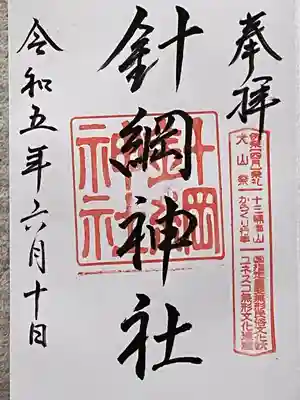 奉拝
犬山祭
十三輌車山
からくり行事
国指定重要無形民俗文化財
ユネスコ無形文化遺産
針綱神社
針綱神社
令和五年六月十日